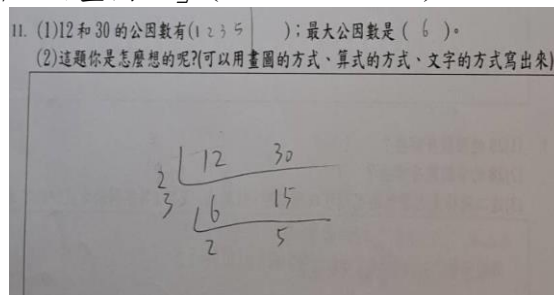 11. (1)12和30的公因數有(1 2 3 5 );最大公因數是( 6 )。
(2)這題你是怎麼想的呢?(可以用畫圖的方式、算式的方式、文字的方式寫出來)
2 12 30
3 6 15
2 5